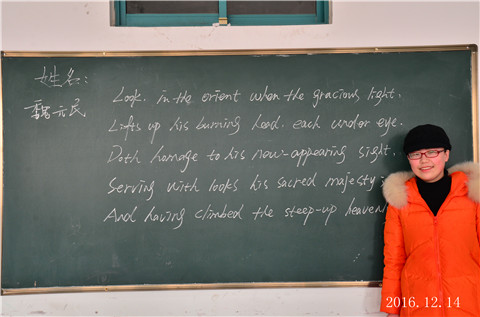 姓名:
Look. in the orient when the gracious light.
Lifts up his burning head. each under eye.
Doth homage to his new-appearing sight.
Serving with looks his sacred majesty
And having climbed the steep-up
2016.12.14